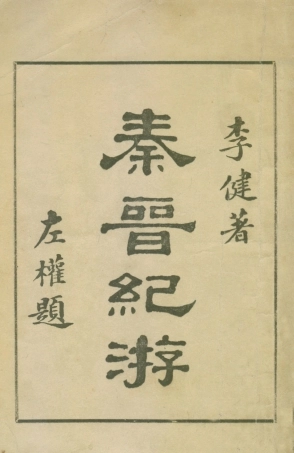 李健著
秦晉紀游
左權題